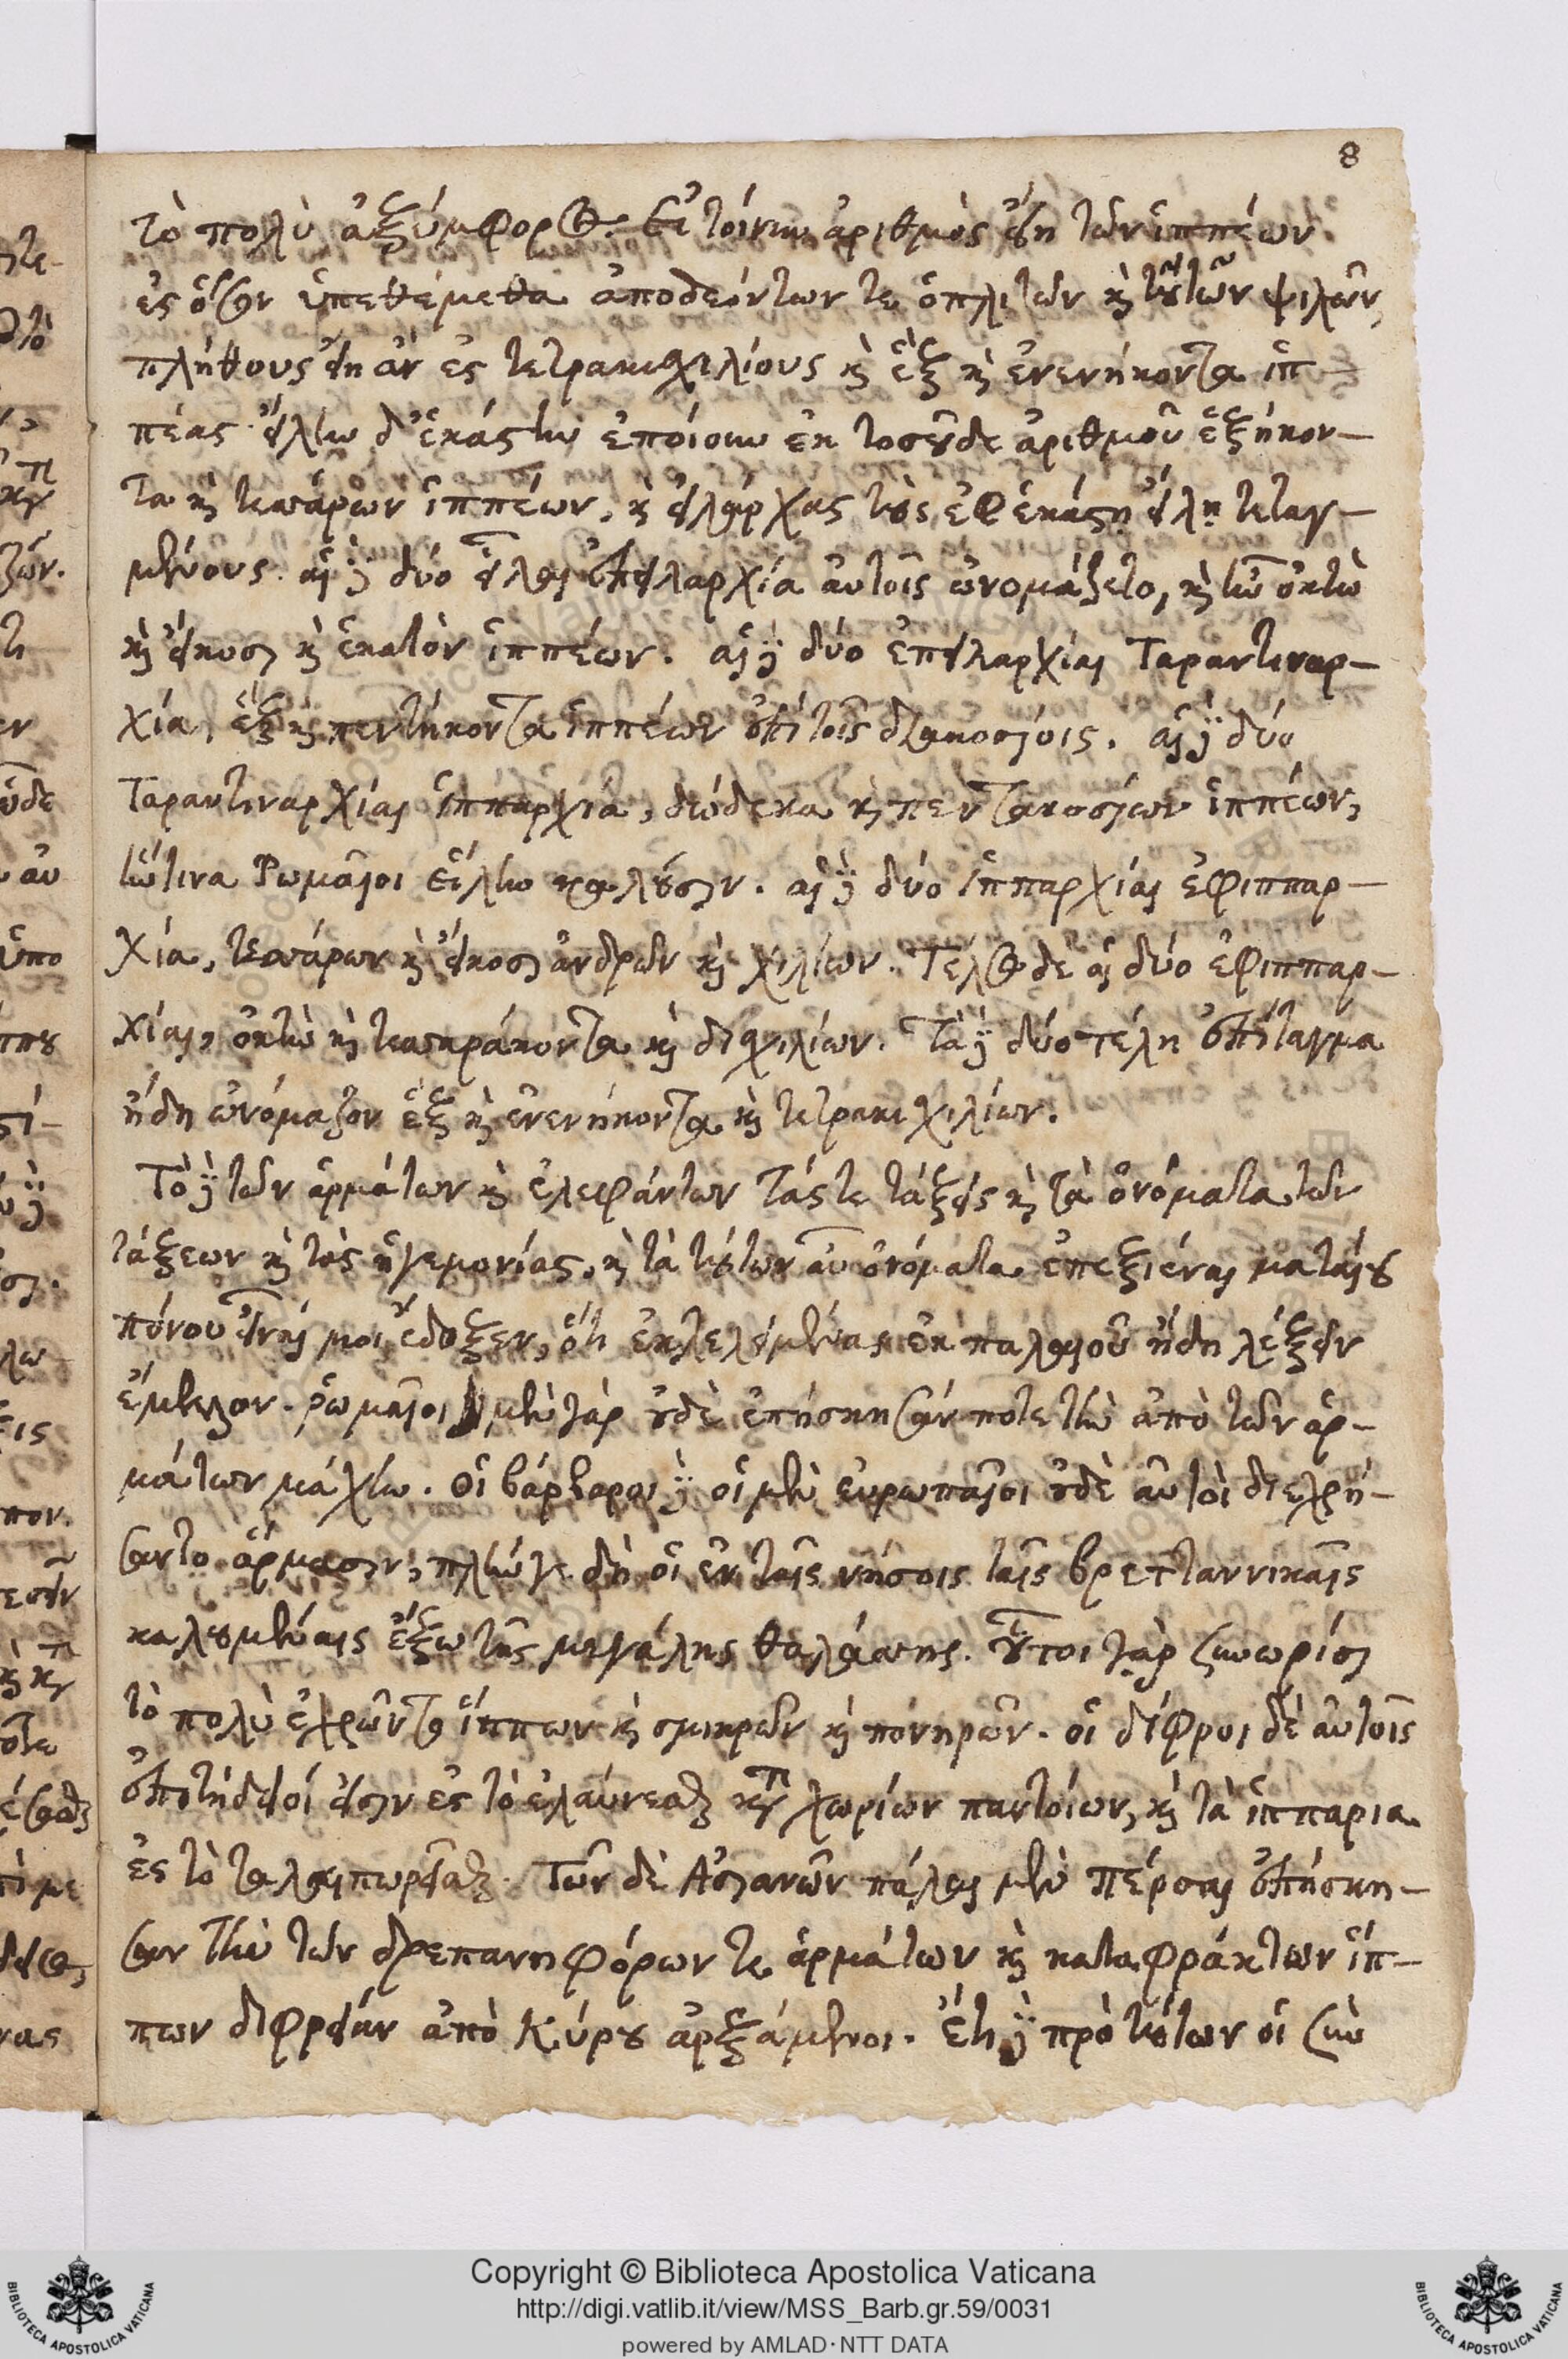 8
τὸ πολὺ ἀξύμφορος. Εἰ τοίνυν ἀριθμὸς εἴη τῶν ἱππέων
ἐς ὅσον ὑπεθέμεθα ἀποδεόντων τε ὁπλιτῶν καὶ τούτων ψιλῶν,
πλήθους εἴη ἂν ἐς τετρακισχιλίους καὶ ἓξ καὶ ἐνενήκοντα ἱπ-
πέας. εἴλην δ' ἑκάστην ἐποίουν ἐκ τοσοῦδε ἀριθμοῦ ἑξήκον-
τα καὶ τεσσάρων ἱππέων, καὶ εἰλάρχας τοὺς ἐφ' ἑκάστῃ εἴλῃ τεταγ-
μένους. αἱ δὲ δύο εἶλαι ἐπειλαρχία αὐτοῖς ὠνομάζετο, καὶ ἦν ὀκτὼ
καὶ εἴκοσι καὶ ἑκατὸν ἱππέων. αἱ δὲ δύο ἐπειλαρχίαι Ταραντιναρ-
χία, ἓξ καὶ πεντήκοντα ἱππέων ἐπὶ τοῖς διακοσίοις. αἱ δὲ δύο
Ταραντιναρχίαι ἱππαρχία, δώδεκα καὶ πεντακοσίων ἱππέων,
ἥντινα Ῥωμαῖοι εἴλην καλοῦσιν. αἱ δὲ δύο ἱππαρχίαι ἐφιππαρ-
χία, τεσσάρων καὶ εἴκοσι ἀνδρῶν καὶ χιλίων. Τέλος δὲ αἱ δύο ἐφιππαρ-
χίαι, ὀκτὼ καὶ τεσσαράκοντα καὶ δισχιλίων. Τὰ δὲ δύο τέλη ἐπίταγμα
ἤδη ὠνόμαζον ἓξ καὶ ἐνενήκοντα καὶ τετρακισχιλίων.
Τὸ δὲ τῶν ἁρμάτων καὶ ἐλεφάντων τάς τε τάξεις καὶ τὰ ὀνόματα τῶν
τάξεων καὶ τὰς ἡγεμονίας, καὶ τὰ τούτων αὖ ὀνόματα ἐπεξιέναι ματαίου
πόνου εἶναί μοι ἔδοξεν, ὅτι ἐκλελειμμένας ἐκ παλαιοῦ ἤδη λέξειν
ἔμελλον. Ῥωμαῖοι μὲν γὰρ οὐδὲ ἐπήσκησάν ποτε τὴν ἀπὸ τῶν ἁρ-
μάτων μάχην. οἱ βάρβαροι δὲ οἱ μὲν εὐρωπαῖοι οὐδὲ αὐτοὶ διεχρή-
σαντο ἅρμασιν, πλήν γε δὴ οἱ ἐν ταῖς νήσοις ταῖς βρετταννικαῖς
καλουμέναις ἔξω τῆς μεγάλης θαλάσσης. οὗτοι γὰρ συνωρίσι
τὸ πολὺ ἐχρῶντο ἵππων καὶ σμικρῶν καὶ πονηρῶν. οἱ δίφροι δὲ αὐτοῖς
ἐπιτήδειοί εἰσιν ἐς τὸ ἐλαύνεσθαι κατὰ χωρίων παντοίων, καὶ τὰ ἱππαρια
ἐς τὸ ταλαιπωρεῖσθαι. Τῶν δὲ Ἀσιανῶν πάλαι μὲν Πέρσαι ἐπήσκη-
σαν τὴν τῶν δρεπανηφόρων τε ἁρμάτων καὶ καταφράκτων ἵπ-
πων διφρείαν ἀπὸ Κύρου ἀρξάμενοι. ἔτι δὲ πρὸ τούτων οἱ σὺν
Copyright © Biblioteca Apostolica Vaticana
http://digi.vatlib.it/view/MSS_Barb.gr.59/0031
powered by AMLAD·NTT DATA